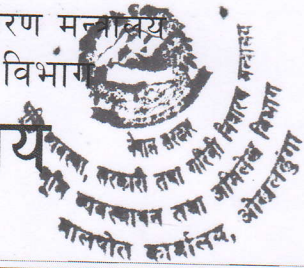 रण मन्त्रालय
विभाग
य
नेपाल सरकार
भूमि व्यवस्था, सहकारी तथा गरिबी निवारण मन्त्रालय
भूमि व्यवस्थापन तथा अभिलेख विभाग
मालपोत कार्यालय, ओखलढुंगा